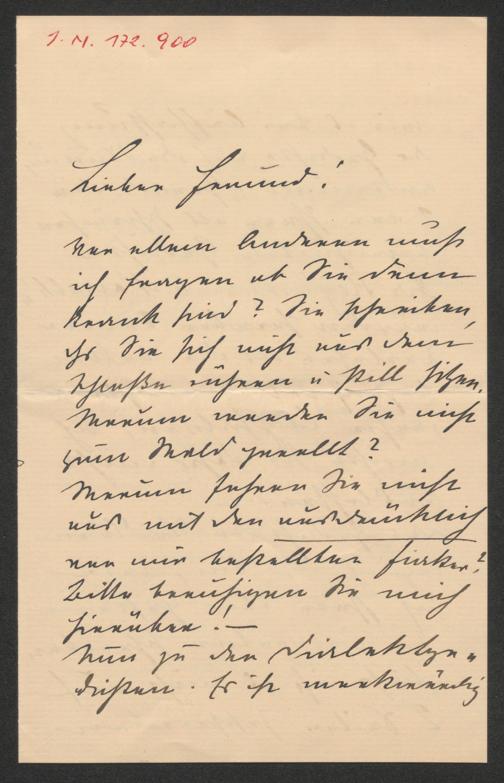 J. N. 172.900
Lieber Freund!
Vor allem Anderen muß
ich fragen ob Sie denn
krank sind? Sie schreiben,
daß Sie sich nicht aus dem
Schloße rühren u still sitzen.
Warum werden Sie nicht
zum Wald gerollt?
Warum fahren Sie nicht
aus mit den ausdrücklich
von mir bestellten Fiaker?
Bitte beruhigen Sie mich
hierüber! —
Nun zu den Dialektge-
dichten. Es ist merkwürdig